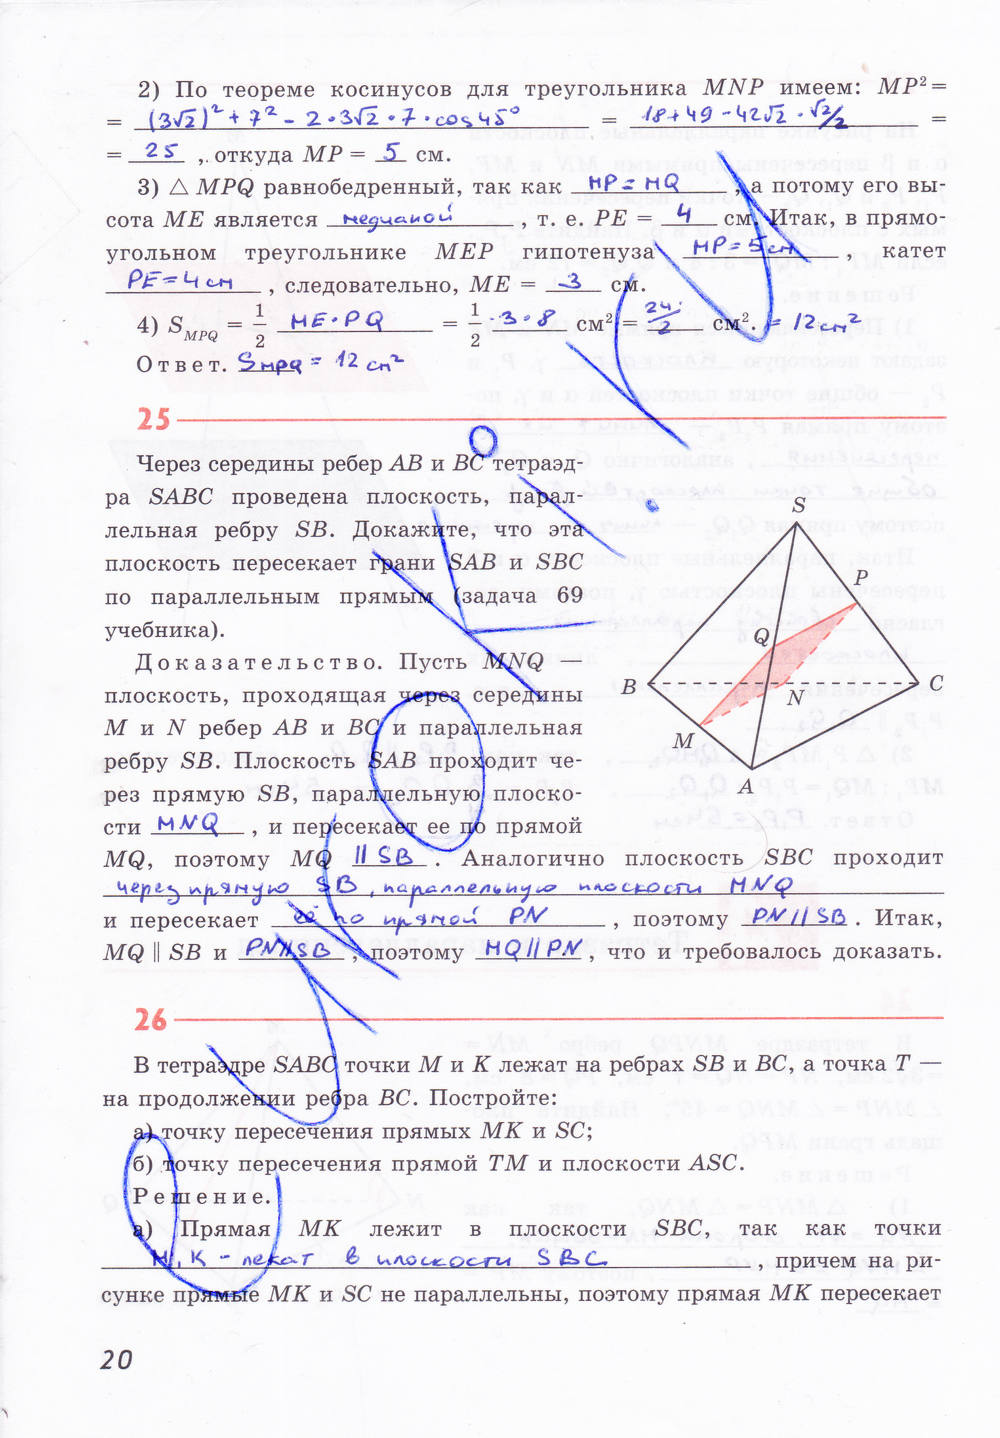 2) По теореме косинусов для треугольника MNP имеем: MP² =
= (3√2)² + 7² - 2 · 3√2 · 7 · cos 45° = 18 + 49 - 42√2 · √2/2 =
= 25 , откуда MP = 5 см.
3) △ MPQ равнобедренный, так как MP = MQ , а потому его вы-
сота ME является медианой , т. е. PE = 4 см. Итак, в прямо-
угольном треугольнике MEP гипотенуза MP = 5 см , катет
PE = 4 см , следовательно, ME = 3 см.
4) S_MPQ = 1/2 ME · PQ = 1/2 · 3 · 8 см² = 24/2 см². = 12 см²
Ответ. Sмpq = 12 см²
25
Через середины ребер AB и BC тетраэд-
ра SABC проведена плоскость, парал-
лельная ребру SB. Докажите, что эта
плоскость пересекает грани SAB и SBC
по параллельным прямым (задача 69
учебника).
Доказательство. Пусть MNQ —
плоскость, проходящая через середины
M и N ребер AB и BC и параллельная
ребру SB. Плоскость SAB проходит че-
рез прямую SB, параллельную плоско-
сти MNQ , и пересекает ее по прямой
MQ, поэтому MQ || SB . Аналогично плоскость SBC проходит
через прямую SB, параллельную плоскости MNQ
и пересекает её по прямой PN , поэтому PN || SB . Итак,
MQ || SB и PN || SB , поэтому MQ || PN , что и требовалось доказать.
S
P
Q
B
C
N
M
A
26
В тетраэдре SABC точки M и K лежат на ребрах SB и BC, а точка T —
на продолжении ребра BC. Постройте:
а) точку пересечения прямых MK и SC;
б) точку пересечения прямой TM и плоскости ASC.
Решение.
а) Прямая MK лежит в плоскости SBC, так как точки
M, K - лежат в плоскости SBC , причем на ри-
сунке прямые MK и SC не параллельны, поэтому прямая MK пересекает
20